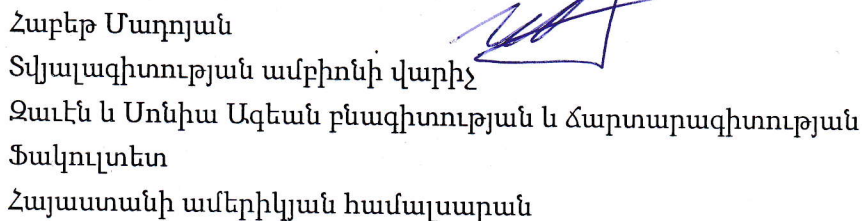 Հաբեթ Մադոյան
Տվյալագիտության ամբիոնի վարիչ
Զաւէն և Սոնիա Ագեան բնագիտության և ճարտարագիտության
Ֆակուլտետ
Հայաստանի ամերիկյան համալսարան